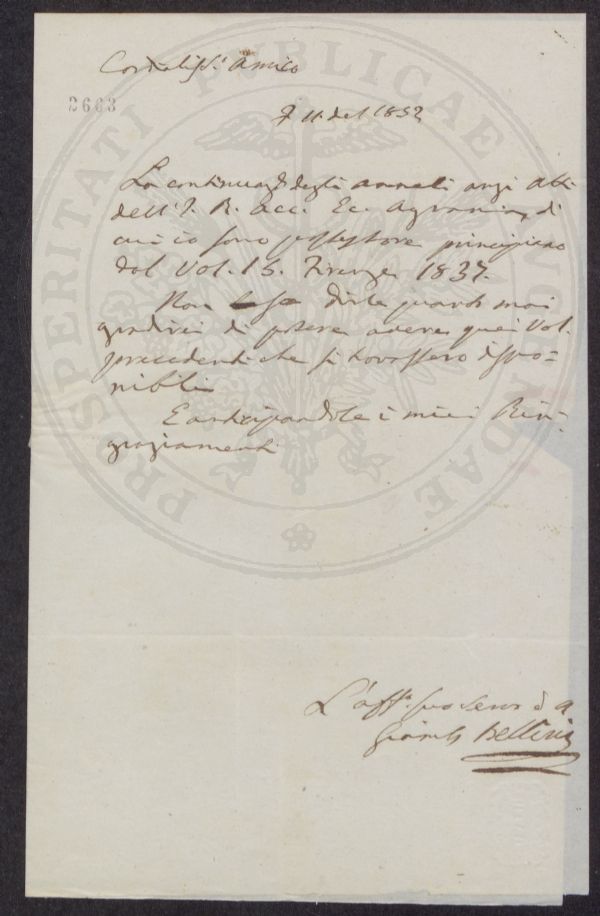 Cordialiss.º Amico
2603
7 11 del 1852
La continuaz.e degli annali anzi Atti
dell'I. R. Acc. Ec. Agraria, di
cui io sono possessore principiano
dal Vol. 15. Firenze 1837.
Non so dirle quanto mai
gradirei di potere avere quei Vol.
precedenti che si trovassero dispo=
nibili
E anticipandole i miei Rin=
graziamenti
L'aff.º suo Serv. ed a
Giamb. Bellini
PROSPERITATI PUBLICAE AUGENDAE